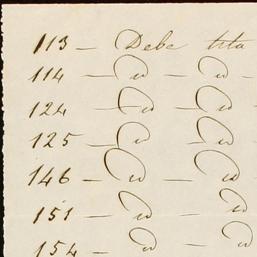 113 — Debe esta
114 — Id — Id —
124 — Id — Id
125 — Id — Id
146 — Id — Id
151 — Id — Id
154 — Id — Id